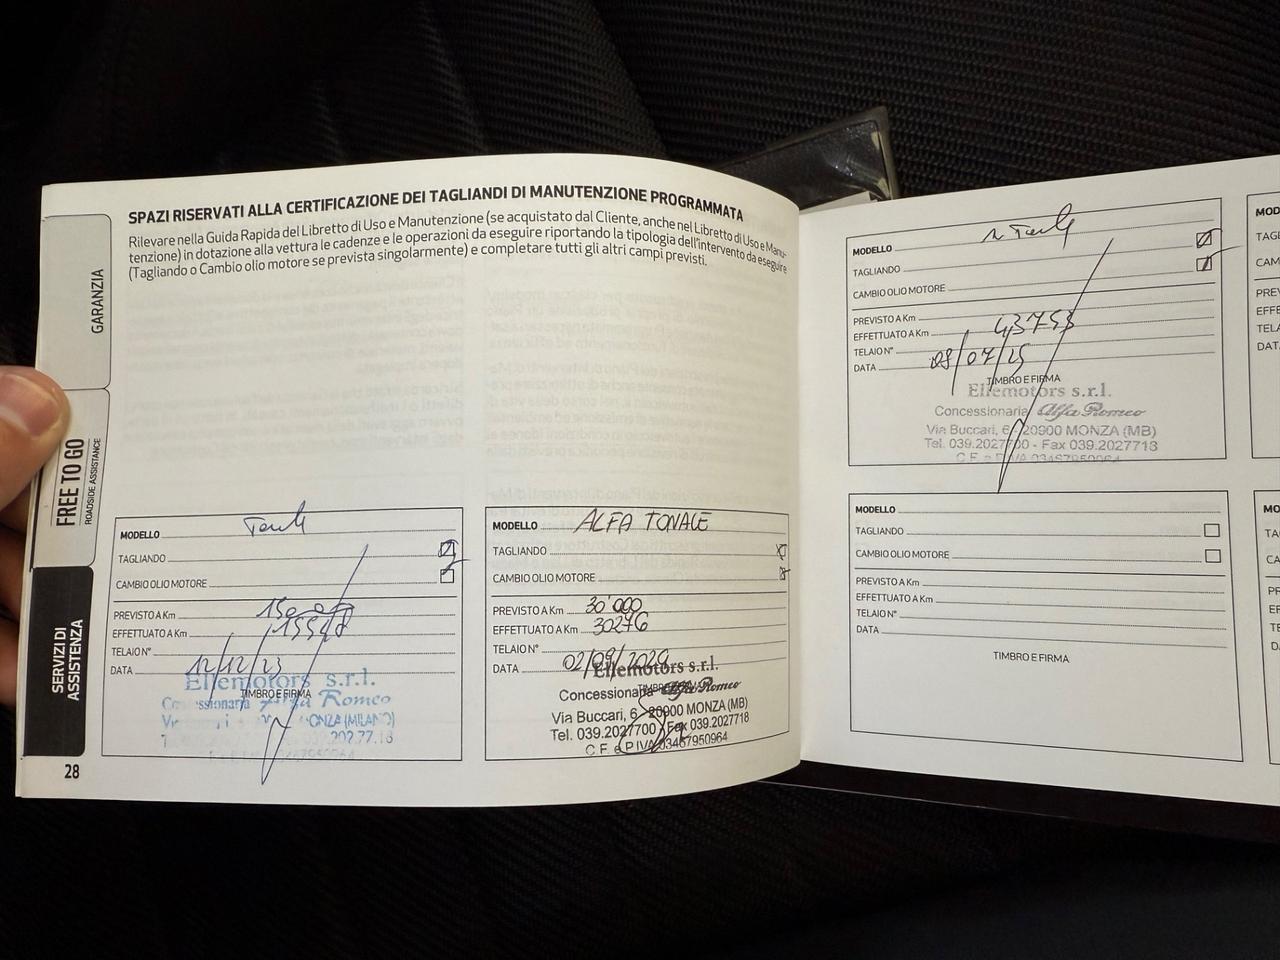 SPAZI RISERVATI ALLA CERTIFICAZIONE DEI TAGLIANDI DI MANUTENZIONE PROGRAMMATA
Rilevare nella Guida Rapida del Libretto di Uso e Manutenzione (se acquistato dal Cliente, anche nel Libretto di Uso e Manu-
tenzione) in dotazione alla vettura le cadenze e le operazioni da eseguire riportando la tipologia dell'intervento da eseguire
(Tagliando o Cambio olio motore se prevista singolarmente) e completare tutti gli altri campi previsti.
GARANZIA
FREE TO GO
ROADSIDE ASSISTANCE
SERVIZI DI
ASSISTENZA
MODELLO
TAGLIANDO
CAMBIO OLIO MOTORE
PREVISTO A Km
EFFETTUATO A Km
TELAIO N°
DATA 12/12/23
TIMBRO E FIRMA
Ellemotors s.r.l.
Alfa Romeo
MONZA (MILANO)
28
MODELLO ALFA TONALE
TAGLIANDO
CAMBIO OLIO MOTORE
PREVISTO A Km 30'000
EFFETTUATO A Km 30276
TELAIO N°
DATA 02/09/2024
Ellemotors s.r.l.
Concessionaria Alfa Romeo
Via Buccari, 6 - 20900 MONZA (MB)
Tel. 039.2027700 - Fax 039.2027718
C.F. e P.IVA 03467950964
MODELLO
TAGLIANDO
CAMBIO OLIO MOTORE
PREVISTO A Km
EFFETTUATO A Km 43753
TELAIO N°
DATA 08/07/25
TIMBRO E FIRMA
Ellemotors s.r.l.
Concessionaria Alfa Romeo
Via Buccari, 6 - 20900 MONZA (MB)
Tel. 039.2027700 - Fax 039.2027718
C.F. e P.IVA 03467950964
MODELLO
TAGLIANDO
CAMBIO OLIO MOTORE
PREVISTO A Km
EFFETTUATO A Km
TELAIO N°
DATA
TIMBRO E FIRMA